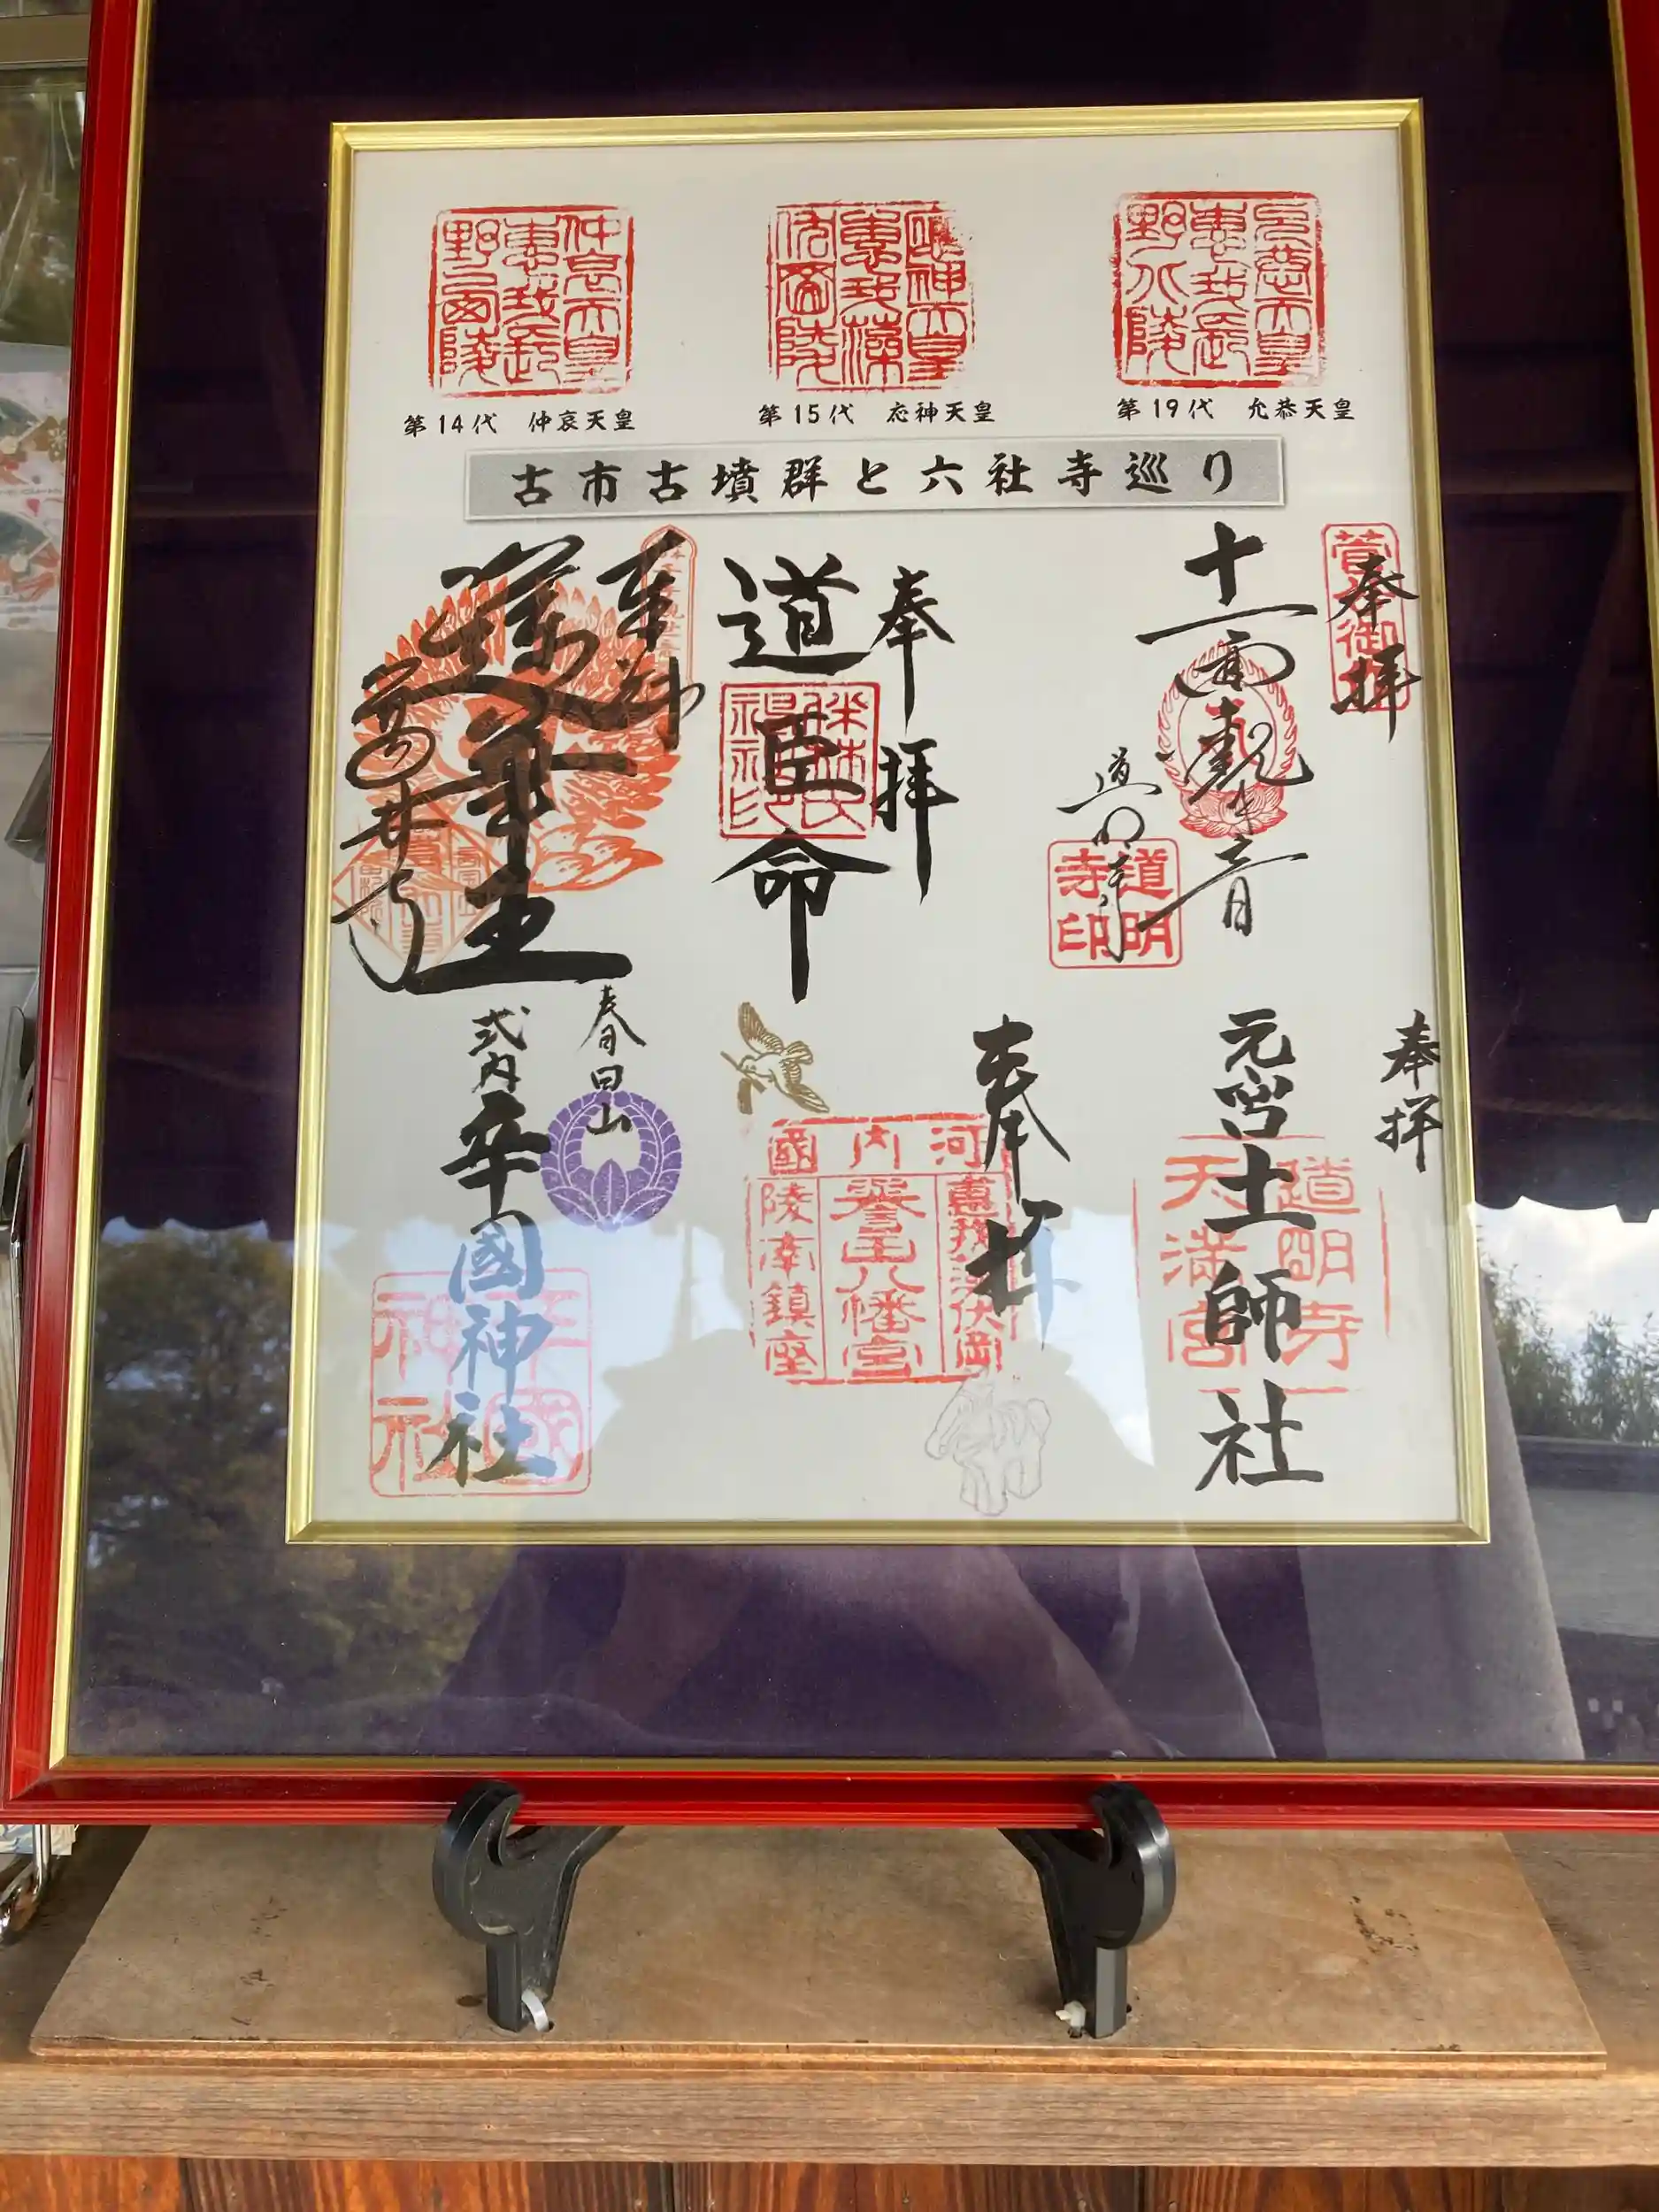 仲哀天皇
惠我長
野西陵
應神天皇
惠我藻
伏岡陵
允恭天皇
惠我長
野北陵
第14代 仲哀天皇
第15代 応神天皇
第19代 允恭天皇
古市古墳群と六社寺巡り
奉拝
葛井寺
奉拝
道臣命
奉拝
十一面観世音
道明寺
道明
寺印
春日山
式内辛國神社
辛國
神社
奉拝
河内國
惠我藻伏岡
譽田八幡宮
陵南鎮座
奉拝
元宮土師社
道明寺
天満宮